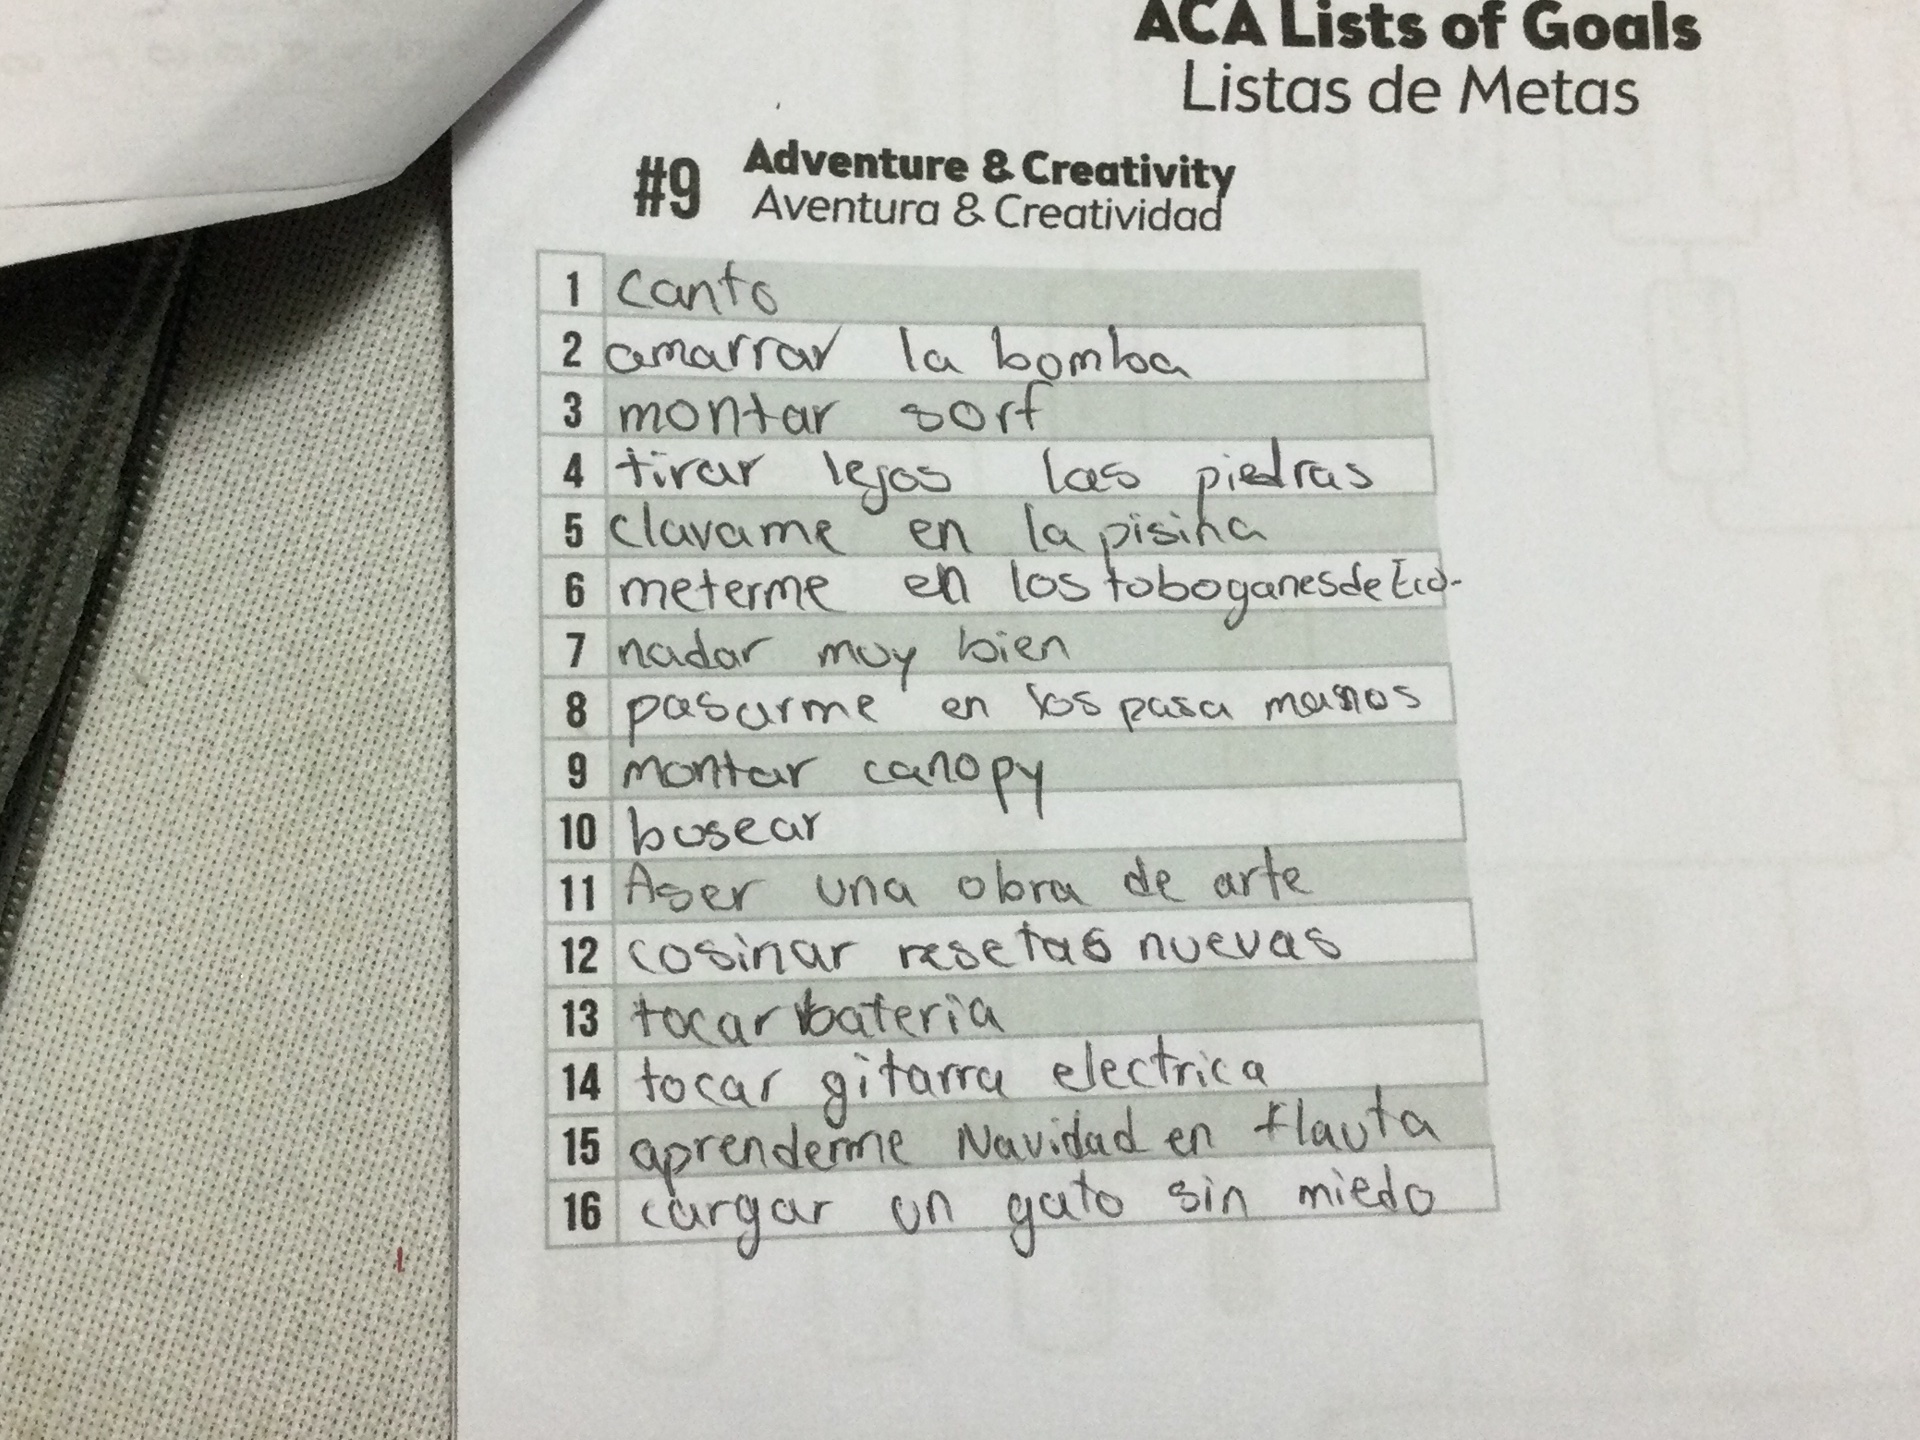 ACA Lists of Goals
Listas de Metas
#9 Adventure & Creativity
Aventura & Creatividad
1 canto
2 amarrar la bomba
3 montar sorf
4 tirar lejos las piedras
5 clavame en la pisina
6 meterme en los toboganes de
7 nadar muy bien
8 pasarme en los pasa manos
9 montar canopy
10 busear
11 Aser una obra de arte
12 cosinar resetas nuevas
13 tocar bateria
14 tocar gitarra electrica
15 aprenderme Navidad en flauta
16 cargar un gato sin miedo